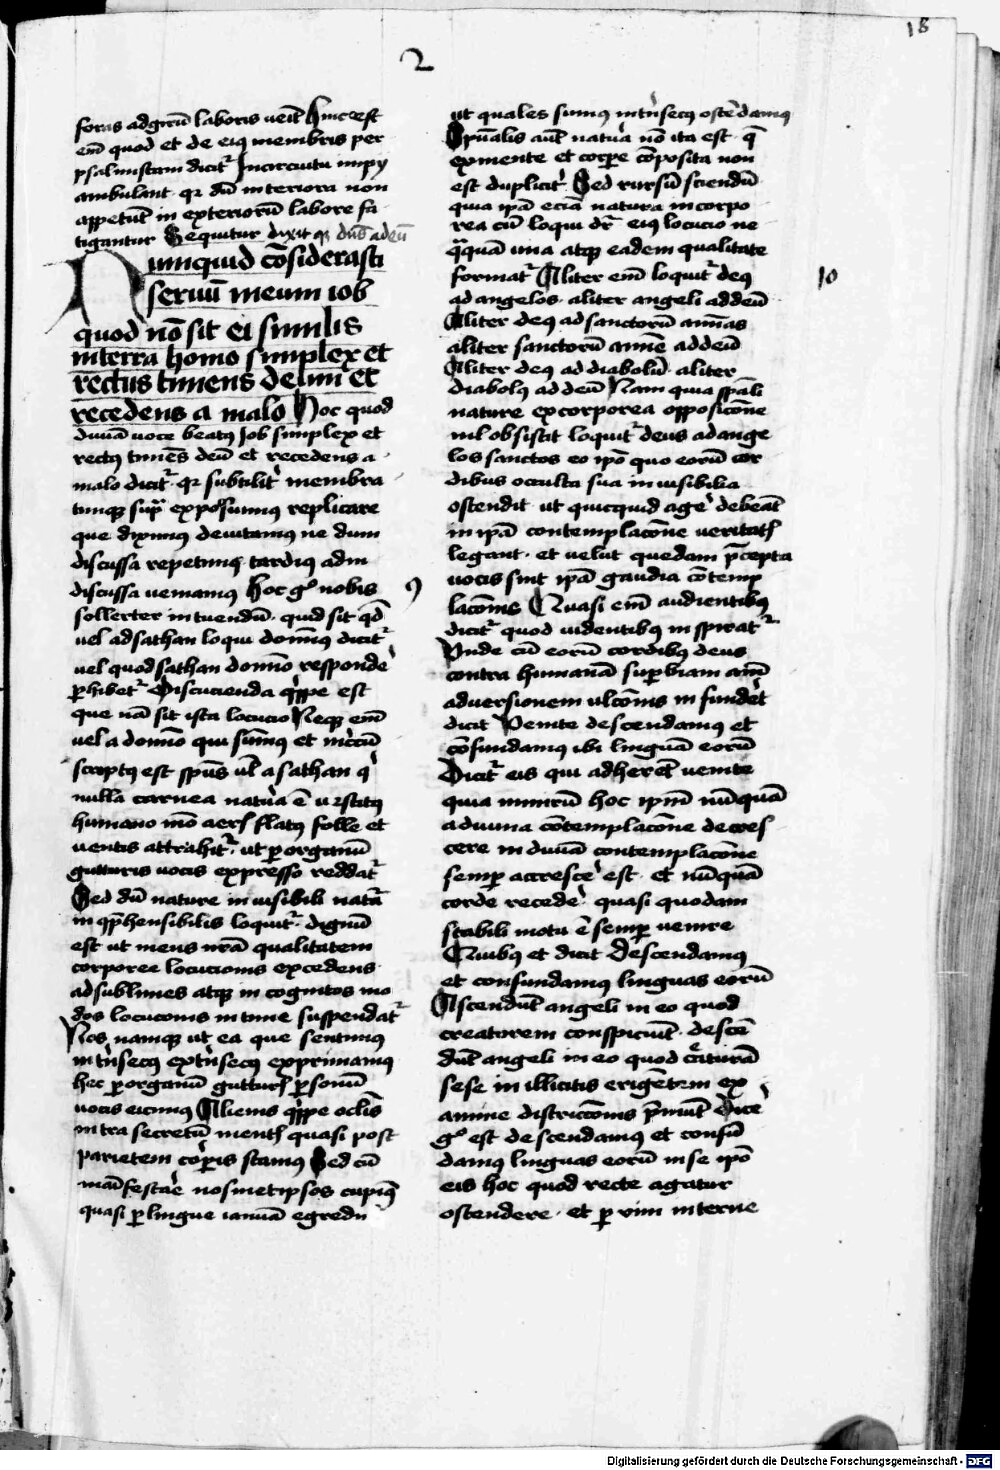 18
2
foras ad girū laboris ueīt Hinc est
em̄ quod et de eiꝯ membris per
psalmistam dicit᷑ In circuitu impij
ambulant · qꝛ dū interiora non
appetūt in exteriorū labore fa
tigantur Sequitur dixit qꝫ dn̄s ad eū
Numquid cōsiderasti
seruū meum iob
quod nō sit ei similis
in terra homo simplex et
rectus timens deum et
recedens a malo Hoc quod
diuīa uoce beatꝯ Job simplex et
rectꝯ timēs deū et recedens a
malo dicit᷑ · qꝛ subtilit᷑ membra
timqꝫ supᷓ exposuimus replicare
que diximꝯ deuitamꝯ ne dum
discussa repetimꝯ tardiꝯ ad in
discussa ueniamꝯ Hoc gͦ nobis
sollerter intuendū · quid sit qd̄
uel ad sathan loqui domīꝯ dicit᷑
uel quod sathan domīo respondē
ꝑhibet᷑ Discucienda q̄ppe est
que nā sit ista locucio Neqꝫ em̄
uel a domīo qui sūmꝯ et incircū
scriptꝯ est spūs ul̄ a sathan q̄
nulla carnea natura ē uestitꝯ
humano mō aeris flatꝯ folle et
uentis attrahit᷑ · ut ꝑ organū
gutturis uocis expresso reddat᷑
Sed dū nature inuisibili natᷓa
inqꝑhensibilis loquit᷑ · dignū
est ut mens nrā qualitatem
corporee locucionis excedens
ad sublimes atqꝫ incognitos mo
dos locucōnis intime suspendat᷑
Nos namqꝫ ut ea que sentimꝯ
intᷓnsecꝯ extᷓnsecꝯ exprimamꝯ
hec ꝑ organū gutturis ꝑ sonū
uocis eicimꝯ Alienis q̄ppe oclis̄
intra secretū mentis quasi post
parietem corꝑis stamꝯ Sed cū
manifestare nosmetipsos cupimꝯ
quasi ꝑ lingue ianuā egredim̄
9
ut quales sumꝯ intᷓnsecꝯ ostēdamꝯ
Spūalis aūt natura nō ita est · q̄
ex mente et corꝑe cōposita non
est duplicit᷑ Sed rursū sciendū
quia ipā eciā natura incorpo
rea cū loqui dr̄ eiꝯ locucio ne
qᷓquā una atqꝫ eadem qualitate
format᷑ Aliter em̄ loquit᷑ deꝯ
ad angelos aliter angeli ad deū
Aliter deꝯ ad sanctorū animas
aliter sanctorū anime ad deū
Aliter deꝯ ad diabolū · aliter
diabolꝯ ad deū Nam quia spūali
nature ex corporea opposicōne
nil obsistit loquit᷑ deus ad ange
los sanctos eo ipō quo eorū cor
dibus occulta sua inuisibilia
ostendit · ut quicquid agere debeāt
in ipā contemplacōne ueritatis
legant · et uelut quedam p̄cepta
uocis sint ipā gaudia cōtemp
lacōnis Quasi em̄ audientibꝯ
dicit᷑ quod uidentibꝯ inspirat᷑
Unde cū eorū cordibꝯ deus
contra humanā suꝑbiam anī
aduersionem ulcōnis infunderet
dicit Uenite descendamus et
cōfundamꝯ ibi linguā eorū
Dicit᷑ eis qui adherēt uenite
quia nimirū hoc ipm̄ nūquā
a diuina cōtemplacōne decres
cere in diuīa contemplacōne
semꝑ accrescere est · et nūquā
corde recedere quasi quodam
stabili motu ē semꝑ uenire
Quibꝯ et dicit Descendamꝯ
et confundamꝯ linguas eorū
Ascendūt angeli in eo quod
creatorem conspiciūt · descē
dūt angeli in eo quod cᷓaturā
sese in illicitis erigētem ex
amine districcōnis p̄mūt Dicere
gͦ est descendamꝯ et confū
damꝯ linguas eorū in se ipō
eis hoc quod recte agatur
ostendere · et ꝑ vim interne
10
Digitalisierung gefördert durch die Deutsche Forschungsgemeinschaft - DFG